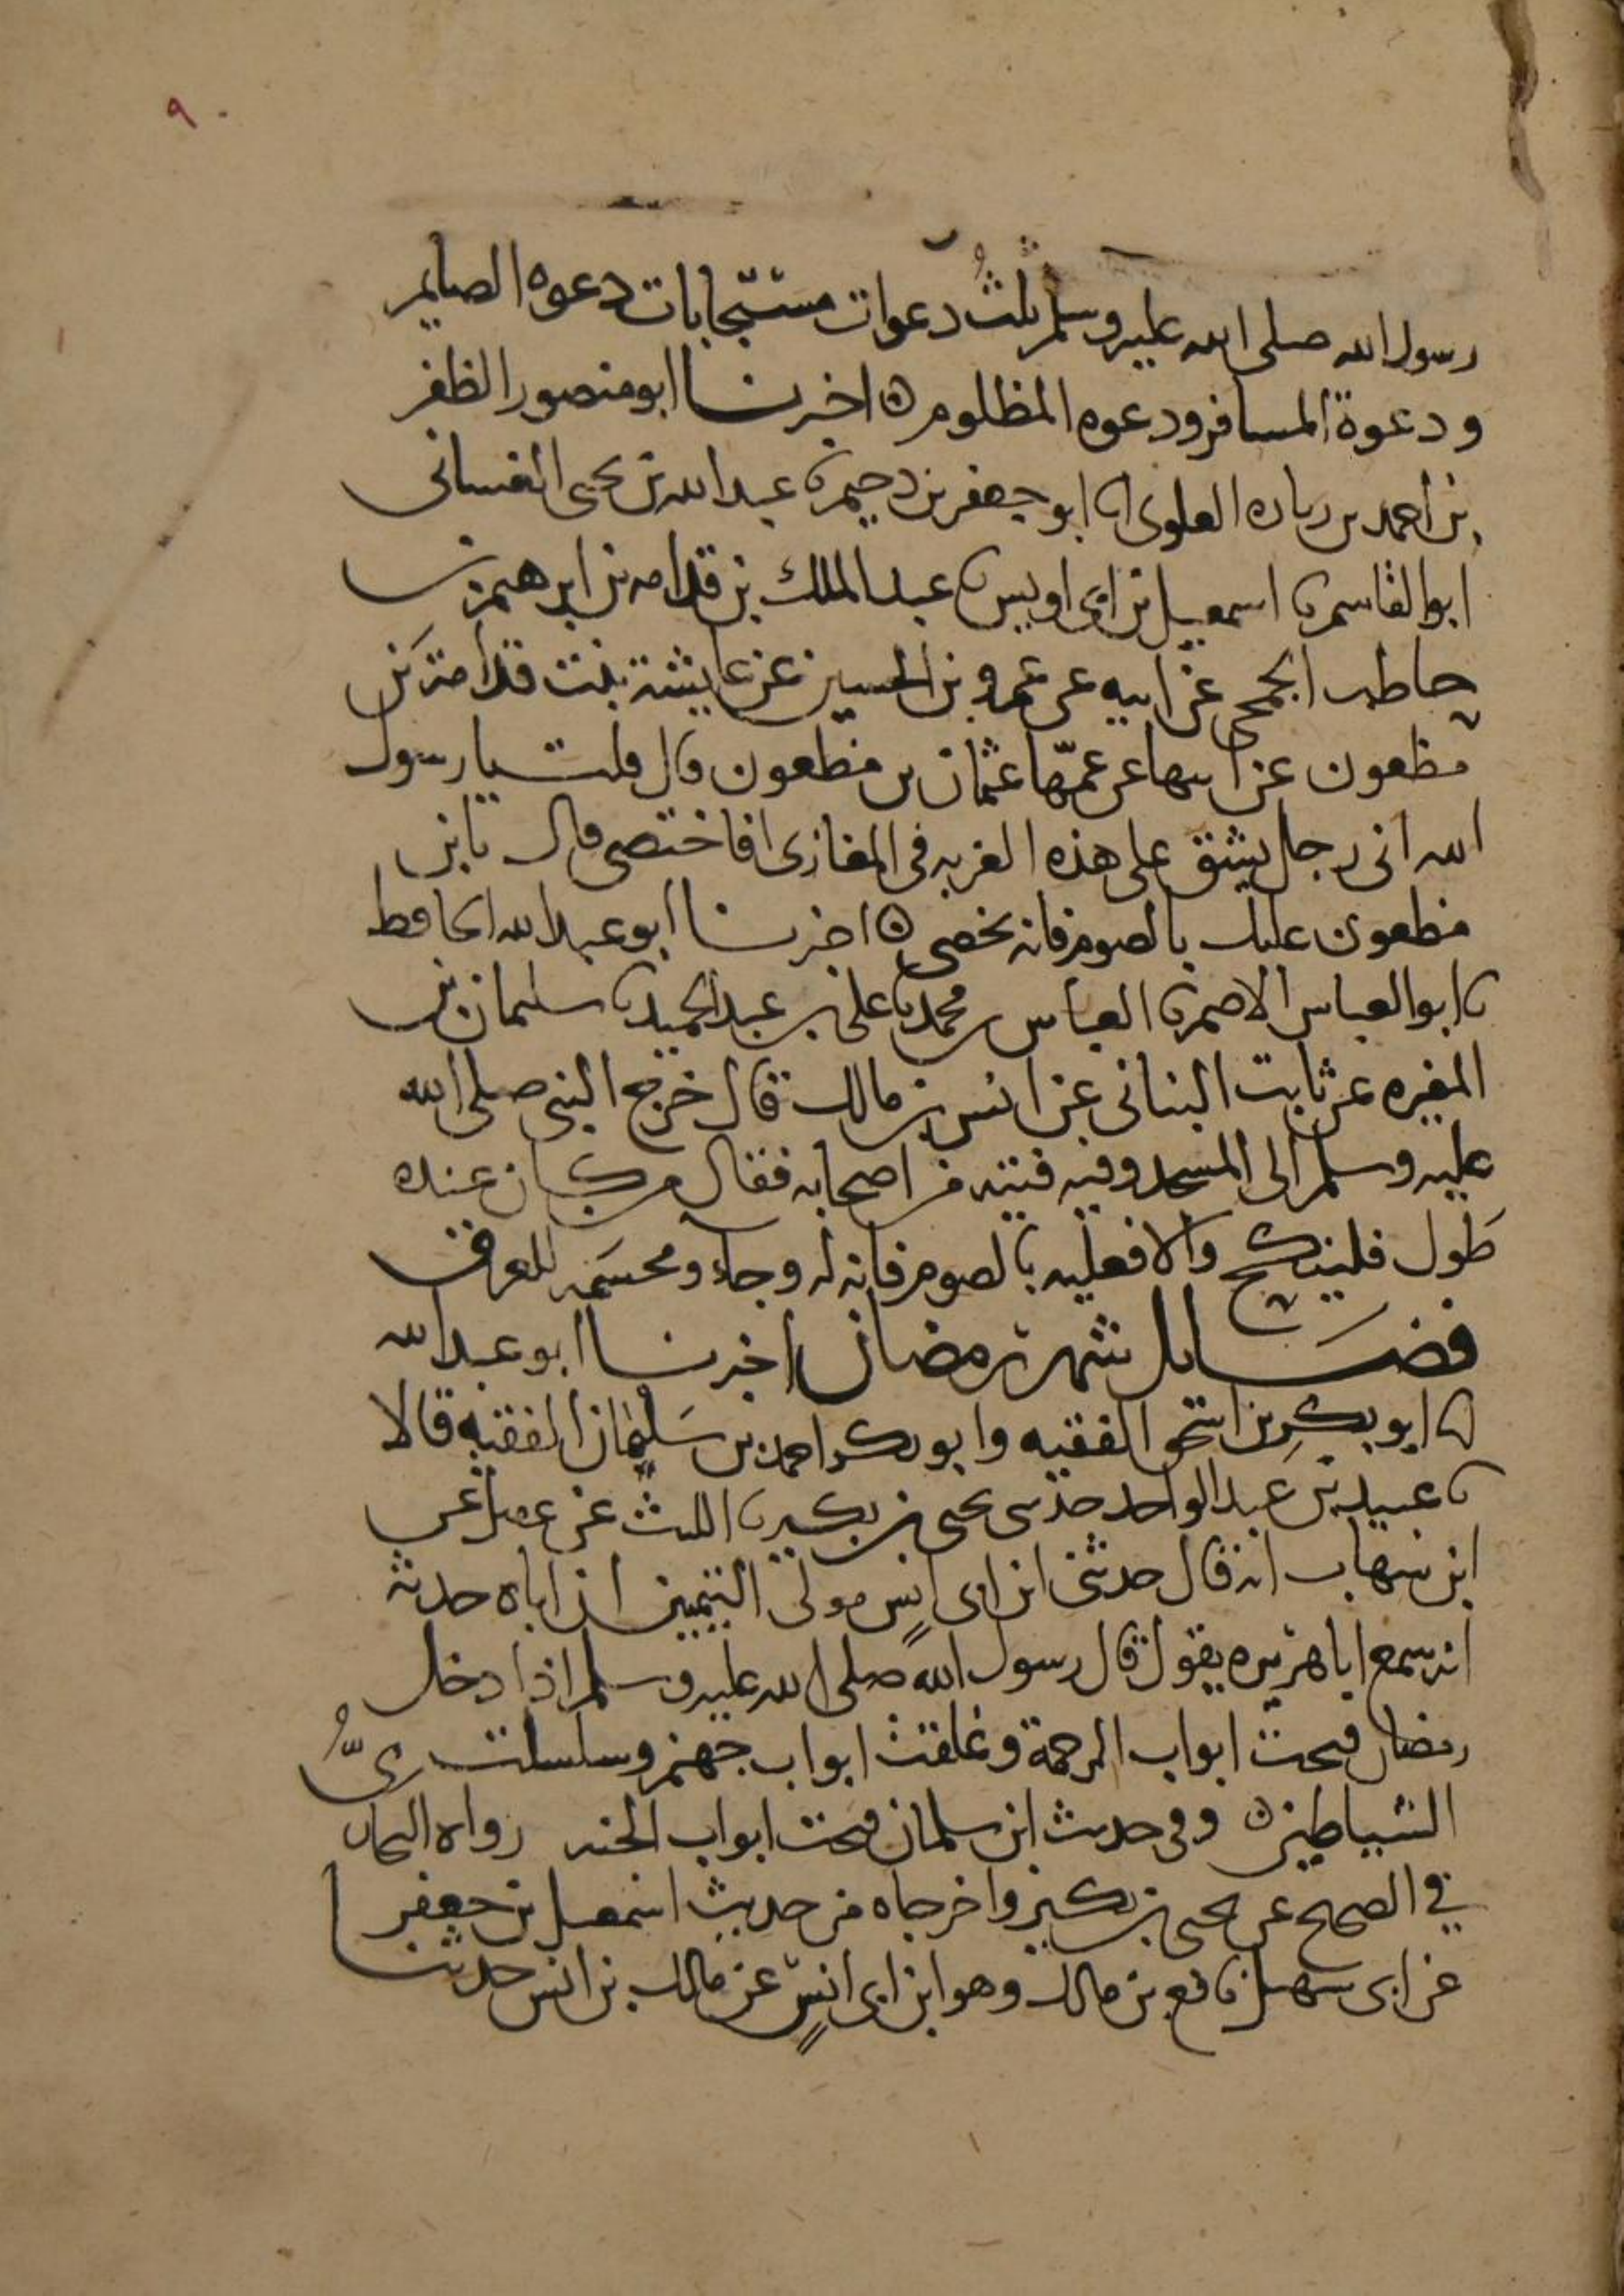 ٩٠
رسول الله صلى الله عليه وسلم ثلثُ دعوات مستجابات دعوه الصايم
ودعوة المسافر ودعوه المظلوم ه اخبرنا ابو منصور الظفر
بن احمد بن رباره العلوى انا ابو جعفر بن دحيم نا عبد الله بن يحيى الغسانى
ابو القاسم نا اسمعيل بن ابى اويس نا عبد الملك بن قدامه بن ابرهيم بن
حاطب الجمحى عن ابيه عن عمرو بن الحسين عن عايشة بنت قدامة بن
مظعون عن ابيها عن عمّها عثمان بن مظعون قال قلت يا رسول
الله انى رجل يشق على هذه الغربه فى المغازى افاختصى قال يا بن
مظعون عليك بالصوم فانه مخصى ه اخبرنا ابو عبد الله الحافظ
نا ابو العباس الاصم نا العباس بن محمد نا على بن عبد الحميد نا سليمان بن
المغيره عن ثابت البنانى عن انس بن مالك قال خرج النبي صلى الله
عليه وسلم الى المسجد وفيه فتيه من اصحابه فقال من كان عنده
طَول فلينكح والا فعليه بالصوم فانه له وجاء ومحسَمه للعرق
فضايل شهر رمضان اخبرنا ابو عبد الله
انا ابو بكرِ بن اسحق الفقيه وابو بكر احمد بن سَليمان الفقيه قالا
نا عبيد بن عَبد الواحد حدثنى يحيى بن بكير نا الليث عن عقيل عن
ابن شهاب انه قال حدثنى ابن ابى انسٍ مولى التيميين ان اباه حدثه
انه سمع ابا هريره يقول قال رسول الله صلى الله عليه وسلم اذا دخل
رمضان فتحت ابواب الرحمة وغلقت ابواب جهنم وسلسلت
الشياطين ه وفى حديث ابن سلمان فتحت ابواب الجنه رواه البخارى
في الصحيح عن يحيى بن بكير واخرجاه من حديث اسمعيل بن جعفر
عن ابى سهيل نافع بن مالك وهو ابن ابى انسٍ عن مالك بن انس حدثنا